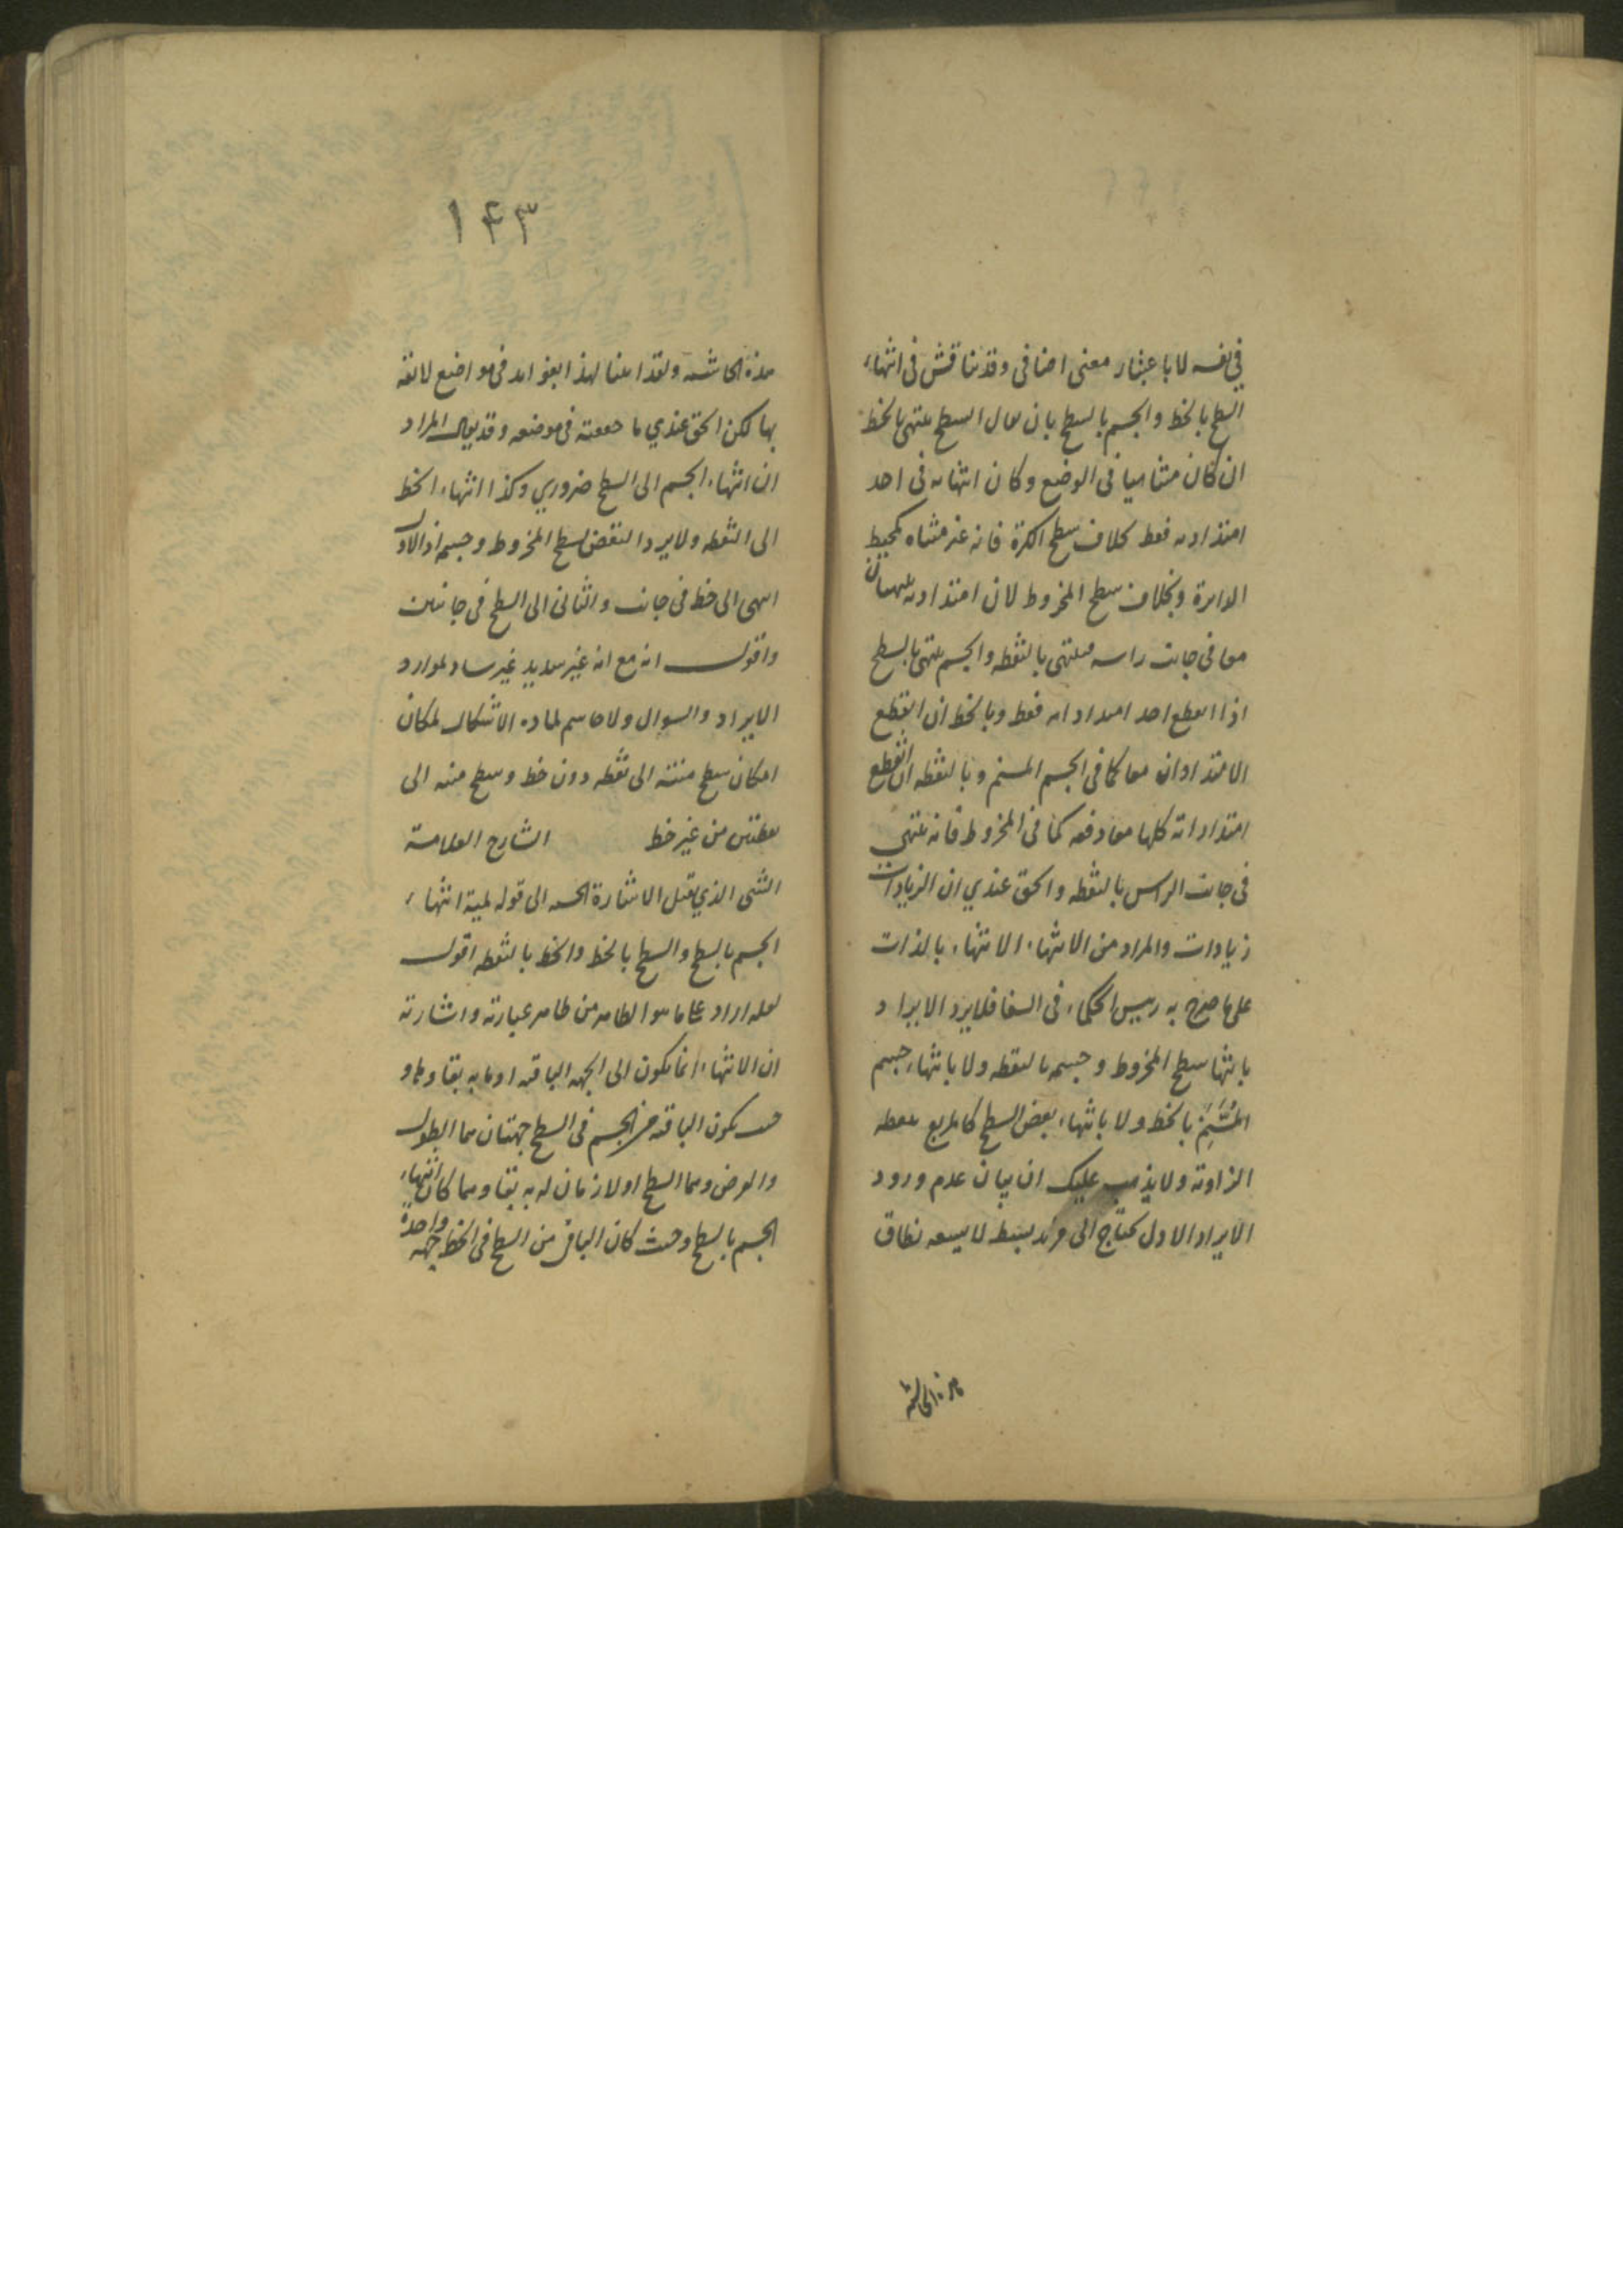 في نفسه لا باعتبار معنى اضافي وقد يناقش في انتهاء
السطح بالخط والجسم بالسطح بان يقال السطح ينتهي بالخط
ان كان متناهيا في الوضع وكان انتهاؤه في احد
امتداديه فقط بخلاف سطح الكرة فانه غير متناه كمحيط
الدايرة وبخلاف سطح المخروط لان امتداديه ينتهيان
معا في جانب راسه فينتهي بالنقطه والجسم ينتهي بالسطح
اذا انقطع احد امتداداته فقط وبالخط ان انقطع
الامتدادان معا كما في الجسم المسنم وبالنقطه ان انقطع
امتداداته كلها معا دفعه كما في المخروط فانه ينتهي
في جانب الراس بالنقطه والحق عندي ان الزيادات
زيادات والمراد من الانتهاء الانتهاء بالذات
على ما صرح به رييس الحكماء في الشفا فلا يرد الايراد
بانتها سطح المخروط وجسمه بالنقطه ولا بانتهاء جسم
المُسَنَّم بالخط ولا بانتهاء بعض السطح كالمربع بنقطه
الزاوية ولا يذهب عليك ان بيان عدم ورود
الايراد الاول يحتاج الى مزيد بسط لا يسعه نطاق
هذه الحاشية
١۴٣
هذه الحاشيه ولقد املنا لهذا بفوايد في مواضع لايقه
بها لكن الحق عندي ما حققته في موضعه وقد يقال المراد
ان انتهاء الجسم الى السطح ضروري وكذا انتهاء الخط
الى النقطه ولا يرد النقض بسطح المخروط وجسمه اذ الاول
انتهى الى خط في جانب والثاني الى السطح في جانبين
واقول انه مع انه غير سديد غير ساد لموارد
الايراد والسوال ولا حاسم لماده الاشكال لمكان
امكان سطح منته الى نقطه دون خط وسطح منه الى
نقطتين من غير خط الشارح العلامة
الشي الذي يقبل الاشارة الحسيه الى قوله لمية انتهاء
الجسم بالسطح والسطح بالخط والخط بالنقطه اقول
لعله اراد على ما هو الظاهر من ظاهر عبارته واشارته
ان الانتهاء انما يكون الى الجهه الباقيه او ما به بقاوها و
حيث يكون الباقيه من الجسم في السطح جهتان هما الطول
والعرض وهما السطح او لازمان له به بقاوهما كان انتهاء
الجسم بالسطح وحيث كان الباقي من السطح في الخط جهه واحدة